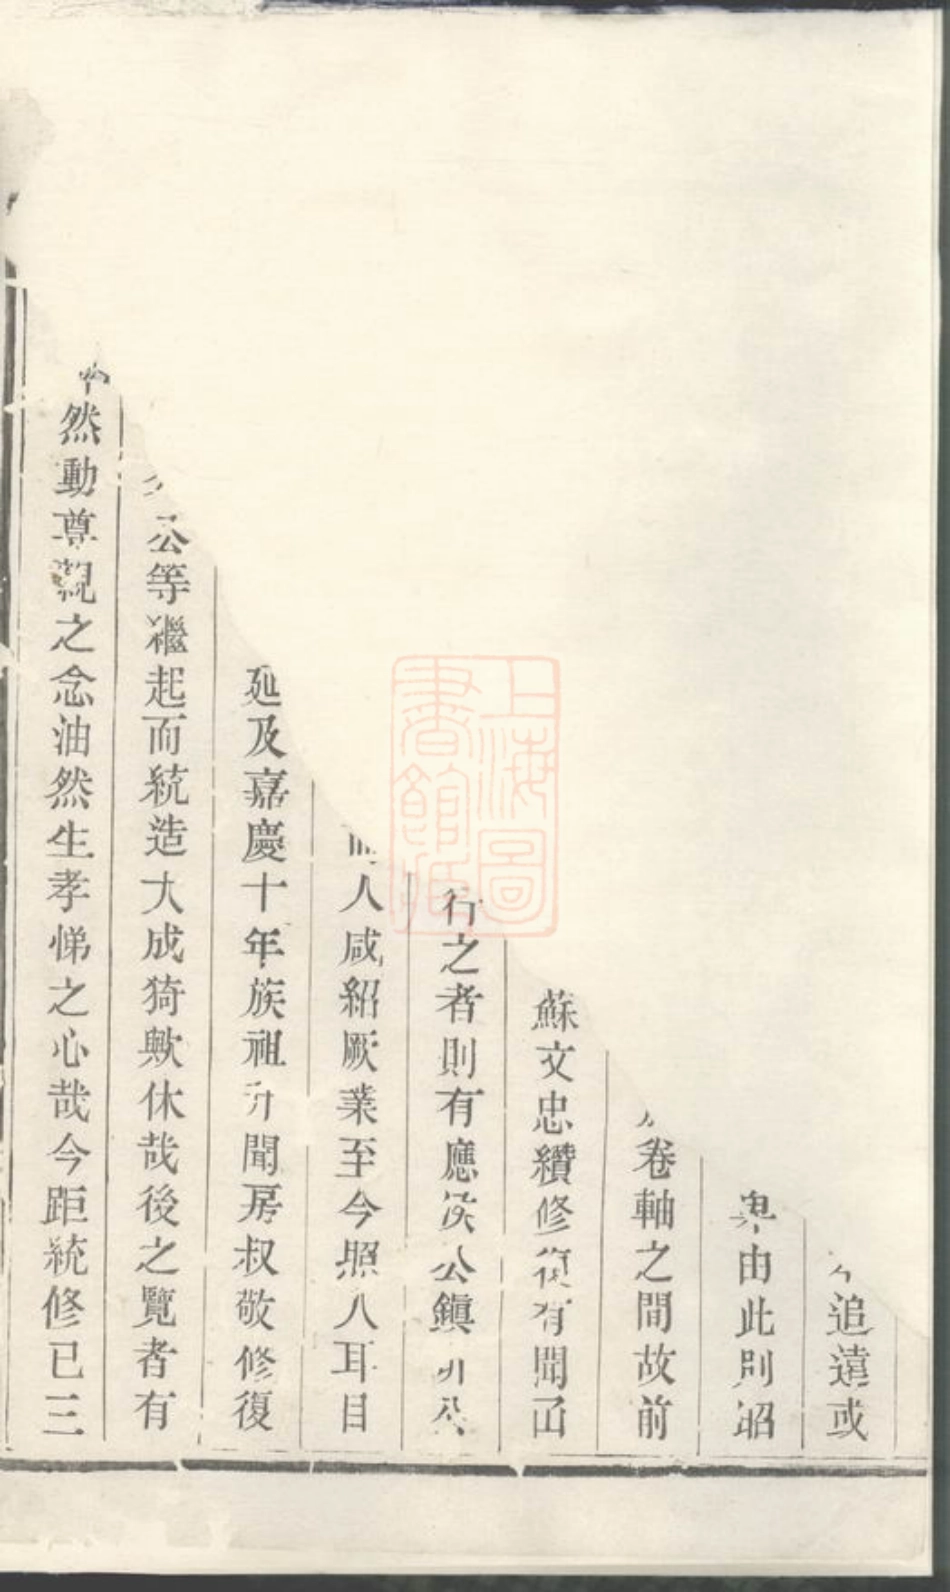 追遠或
由此則昭
卷軸之間故前
蘇文忠纘修復有聞
行之者則有應侯公鎮
人咸紹厥業至今照人耳目
延及嘉慶十年族祖聞房叔敬修復
公等繼起而統造大成猗歟休哉後之覽者有
然動尊親之念油然生孝悌之心哉今距統修已三
上海圖
書館藏